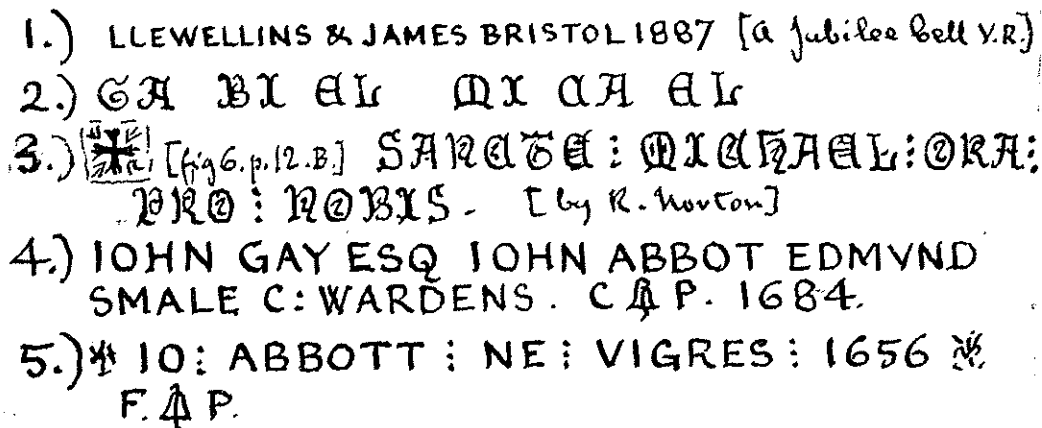 1.) LLEWELLINS & JAMES BRISTOL 1887 [a Jubilee bell V.R.]
2.) GA BI EL MI CA EL
3.) [fig 6. p. 12. B.] SANCTE : MICHAEL : ORA :
PRO : NOBIS. [by R. Norton]
4.) IOHN GAY ESQ IOHN ABBOT EDMVND
SMALE C: WARDENS. C P. 1684.
5.) IO: ABBOTT : NE : VIGRES : 1656
F. P.